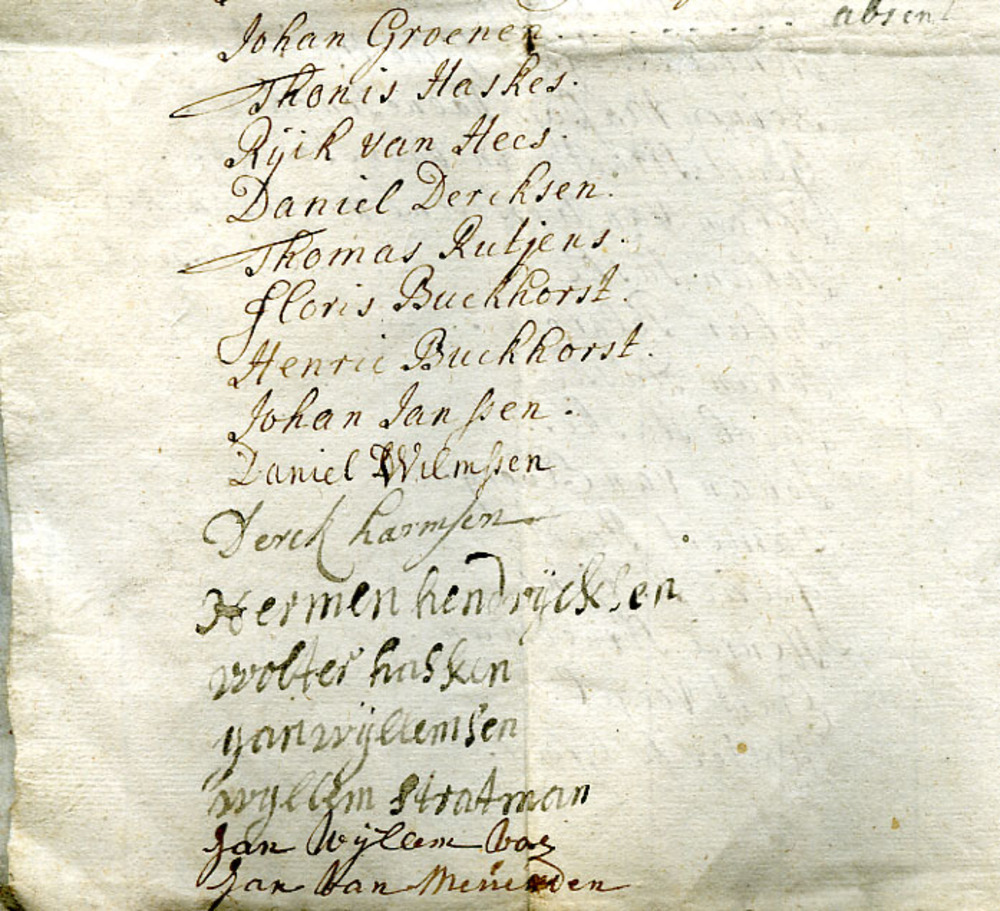 absent
Johan Groenen
Thonis Haskes.
Rijik van Hees.
Daniel Dercksen.
Thomas Rutjens.
Floris Buckhorst.
Henric Buckhorst.
Johan Janssen.
Daniel Wilmssen
Derck harmsen
Hermen hendrijcksen
wolter hasken
yan wijllemsen
wyllem stratman
Jan Wijllem
Jan Van